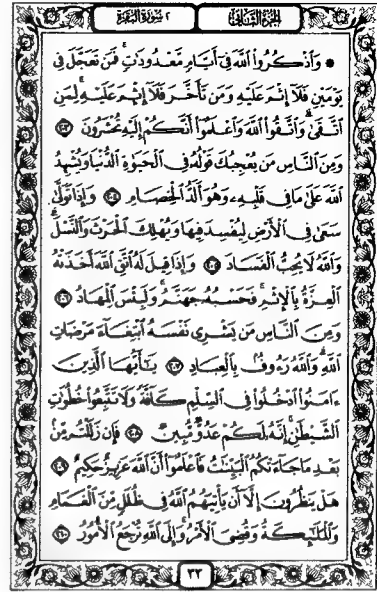 الجزء الثاني ٢ سورة البقرة
۞ وَٱذْكُرُوا۟ ٱللَّهَ فِىٓ أَيَّامٍ مَّعْدُودَٰتٍ ۚ فَمَن تَعَجَّلَ فِى
يَوْمَيْنِ فَلَآ إِثْمَ عَلَيْهِ وَمَن تَأَخَّرَ فَلَآ إِثْمَ عَلَيْهِ ۚ لِمَنِ
ٱتَّقَىٰ ۗ وَٱتَّقُوا۟ ٱللَّهَ وَٱعْلَمُوٓا۟ أَنَّكُمْ إِلَيْهِ تُحْشَرُونَ ٢٠٣
وَمِنَ ٱلنَّاسِ مَن يُعْجِبُكَ قَوْلُهُۥ فِى ٱلْحَيَوٰةِ ٱلدُّنْيَا وَيُشْهِدُ
ٱللَّهَ عَلَىٰ مَا فِى قَلْبِهِۦ وَهُوَ أَلَدُّ ٱلْخِصَامِ ٢٠٤ وَإِذَا تَوَلَّىٰ
سَعَىٰ فِى ٱلْأَرْضِ لِيُفْسِدَ فِيهَا وَيُهْلِكَ ٱلْحَرْثَ وَٱلنَّسْلَ ۗ
وَٱللَّهُ لَا يُحِبُّ ٱلْفَسَادَ ٢٠٥ وَإِذَا قِيلَ لَهُ ٱتَّقِ ٱللَّهَ أَخَذَتْهُ
ٱلْعِزَّةُ بِٱلْإِثْمِ ۚ فَحَسْبُهُۥ جَهَنَّمُ ۚ وَلَبِئْسَ ٱلْمِهَادُ ٢٠٦
وَمِنَ ٱلنَّاسِ مَن يَشْرِى نَفْسَهُ ٱبْتِغَآءَ مَرْضَاتِ
ٱللَّهِ ۗ وَٱللَّهُ رَءُوفٌۢ بِٱلْعِبَادِ ٢٠٧ يَٰٓأَيُّهَا ٱلَّذِينَ
ءَامَنُوا۟ ٱدْخُلُوا۟ فِى ٱلسِّلْمِ كَآفَّةً وَلَا تَتَّبِعُوا۟ خُطُوَٰتِ
ٱلشَّيْطَٰنِ ۚ إِنَّهُۥ لَكُمْ عَدُوٌّ مُّبِينٌ ٢٠٨ فَإِن زَلَلْتُم مِّنۢ
بَعْدِ مَا جَآءَتْكُمُ ٱلْبَيِّنَٰتُ فَٱعْلَمُوٓا۟ أَنَّ ٱللَّهَ عَزِيزٌ حَكِيمٌ ٢٠٩
هَلْ يَنظُرُونَ إِلَّآ أَن يَأْتِيَهُمُ ٱللَّهُ فِى ظُلَلٍ مِّنَ ٱلْغَمَامِ
وَٱلْمَلَٰٓئِكَةُ وَقُضِىَ ٱلْأَمْرُ ۚ وَإِلَى ٱللَّهِ تُرْجَعُ ٱلْأُمُورُ ٢١٠
٣٢